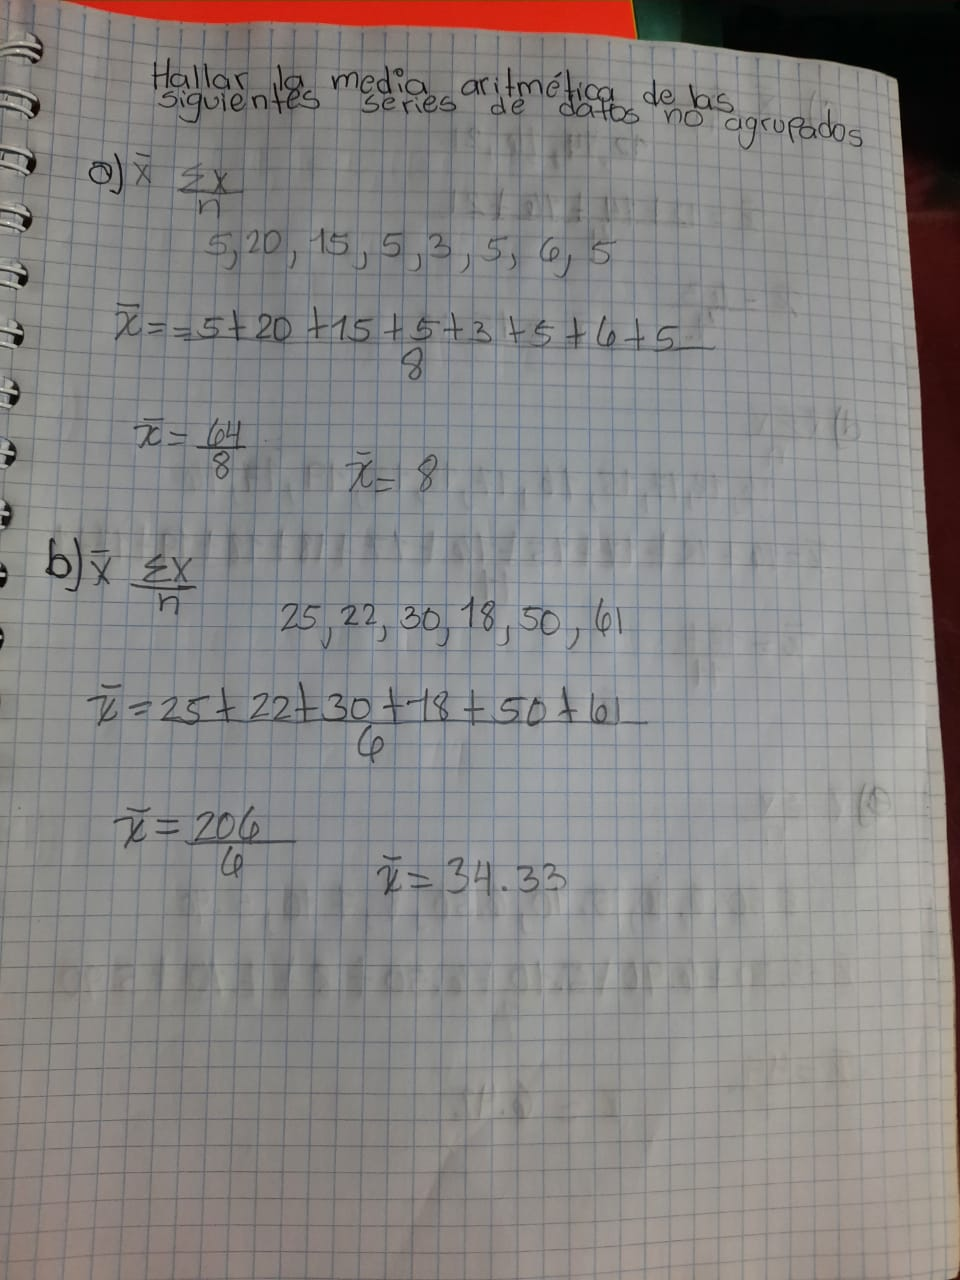 Hallar la media aritmética de las
siguientes series de datos no agrupados
a) x̄ Σx
n
5, 20, 15, 5, 3, 5, 6, 5
x̄ = = 5 + 20 + 15 + 5 + 3 + 5 + 6 + 5
8
x̄ = 64
8
x̄ = 8
b) x̄ Σx
n
25, 22, 30, 18, 50, 61
x̄ = 25 + 22 + 30 + 18 + 50 + 61
6
x̄ = 206
6
x̄ = 34.33